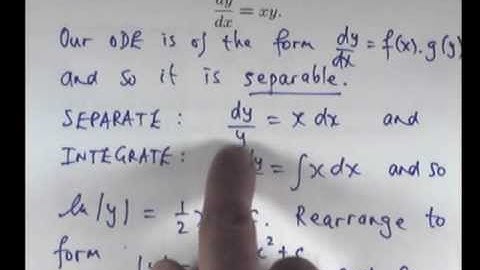 dy/dx = xy.
Our ODE is of the form dy/dx = f(x).g(y)
and so it is separable.
SEPARATE: dy/y = x dx and
INTEGRATE: = ∫ x dx and so
ln|y| = 1/2 Rearrange to
form